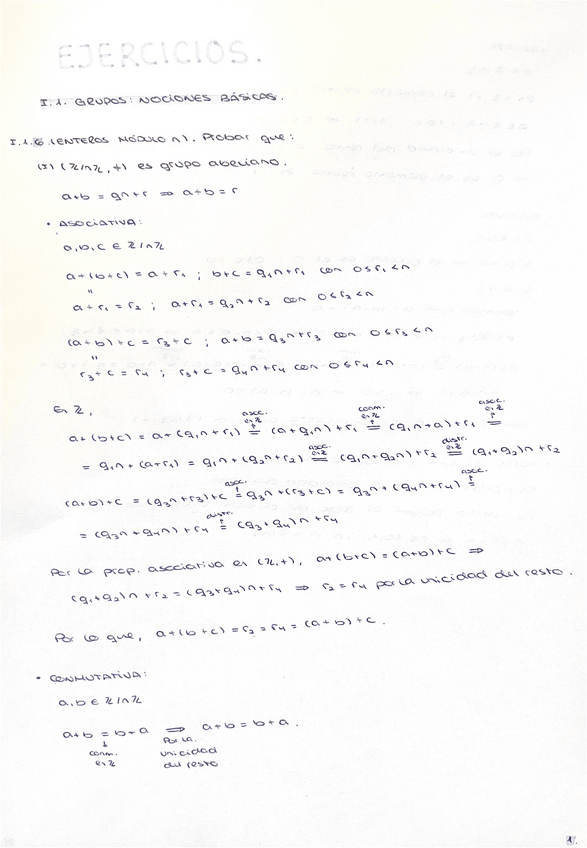 EJERCICIOS.
I.1. GRUPOS: NOCIONES BÁSICAS.
I.1.6 (ENTEROS MÓDULO n). Probar que:
(I) (ℤ/nℤ, +) es grupo abeliano.
a+b = qn+r ⇒ a+b = r
• ASOCIATIVA:
a,b,c ∈ ℤ/nℤ
a+(b+c) = a+r₁ ; b+c = q₁n+r₁ con 0≤r₁<n
"
a+r₁ = r₂ ; a+r₁ = q₂n+r₂ con 0≤r₂<n
(a+b)+c = r₃+c ; a+b = q₃n+r₃ con 0≤r₃<n
"
r₃+c = r₄ ; r₃+c = q₄n+r₄ con 0≤r₄<n
En ℤ,
asoc. en ℤ conm. en ℤ asoc. en ℤ
a+(b+c) = a+(q₁n+r₁) = (a+q₁n)+r₁ = (q₁n+a)+r₁ =
asoc. en ℤ distr. en ℤ
= q₁n+(a+r₁) = q₁n+(q₂n+r₂) = (q₁n+q₂n)+r₂ = (q₁+q₂)n+r₂
asoc. asoc.
(a+b)+c = (q₃n+r₃)+c = q₃n+(r₃+c) = q₃n+(q₄n+r₄) =
distr.
= (q₃n+q₄n)+r₄ = (q₃+q₄)n+r₄
Por la prop. asociativa en (ℤ,+), a+(b+c) = (a+b)+c ⇒
(q₁+q₂)n+r₂ = (q₃+q₄)n+r₄ ⇒ r₂ = r₄ por la unicidad del resto.
Por lo que, a+(b+c) = r₂ = r₄ = (a+b)+c.
• CONMUTATIVA:
a,b ∈ ℤ/nℤ
a+b = b+a ⇒ a+b = b+a.
↓ Por la
conm. unicidad
en ℤ del resto
1.